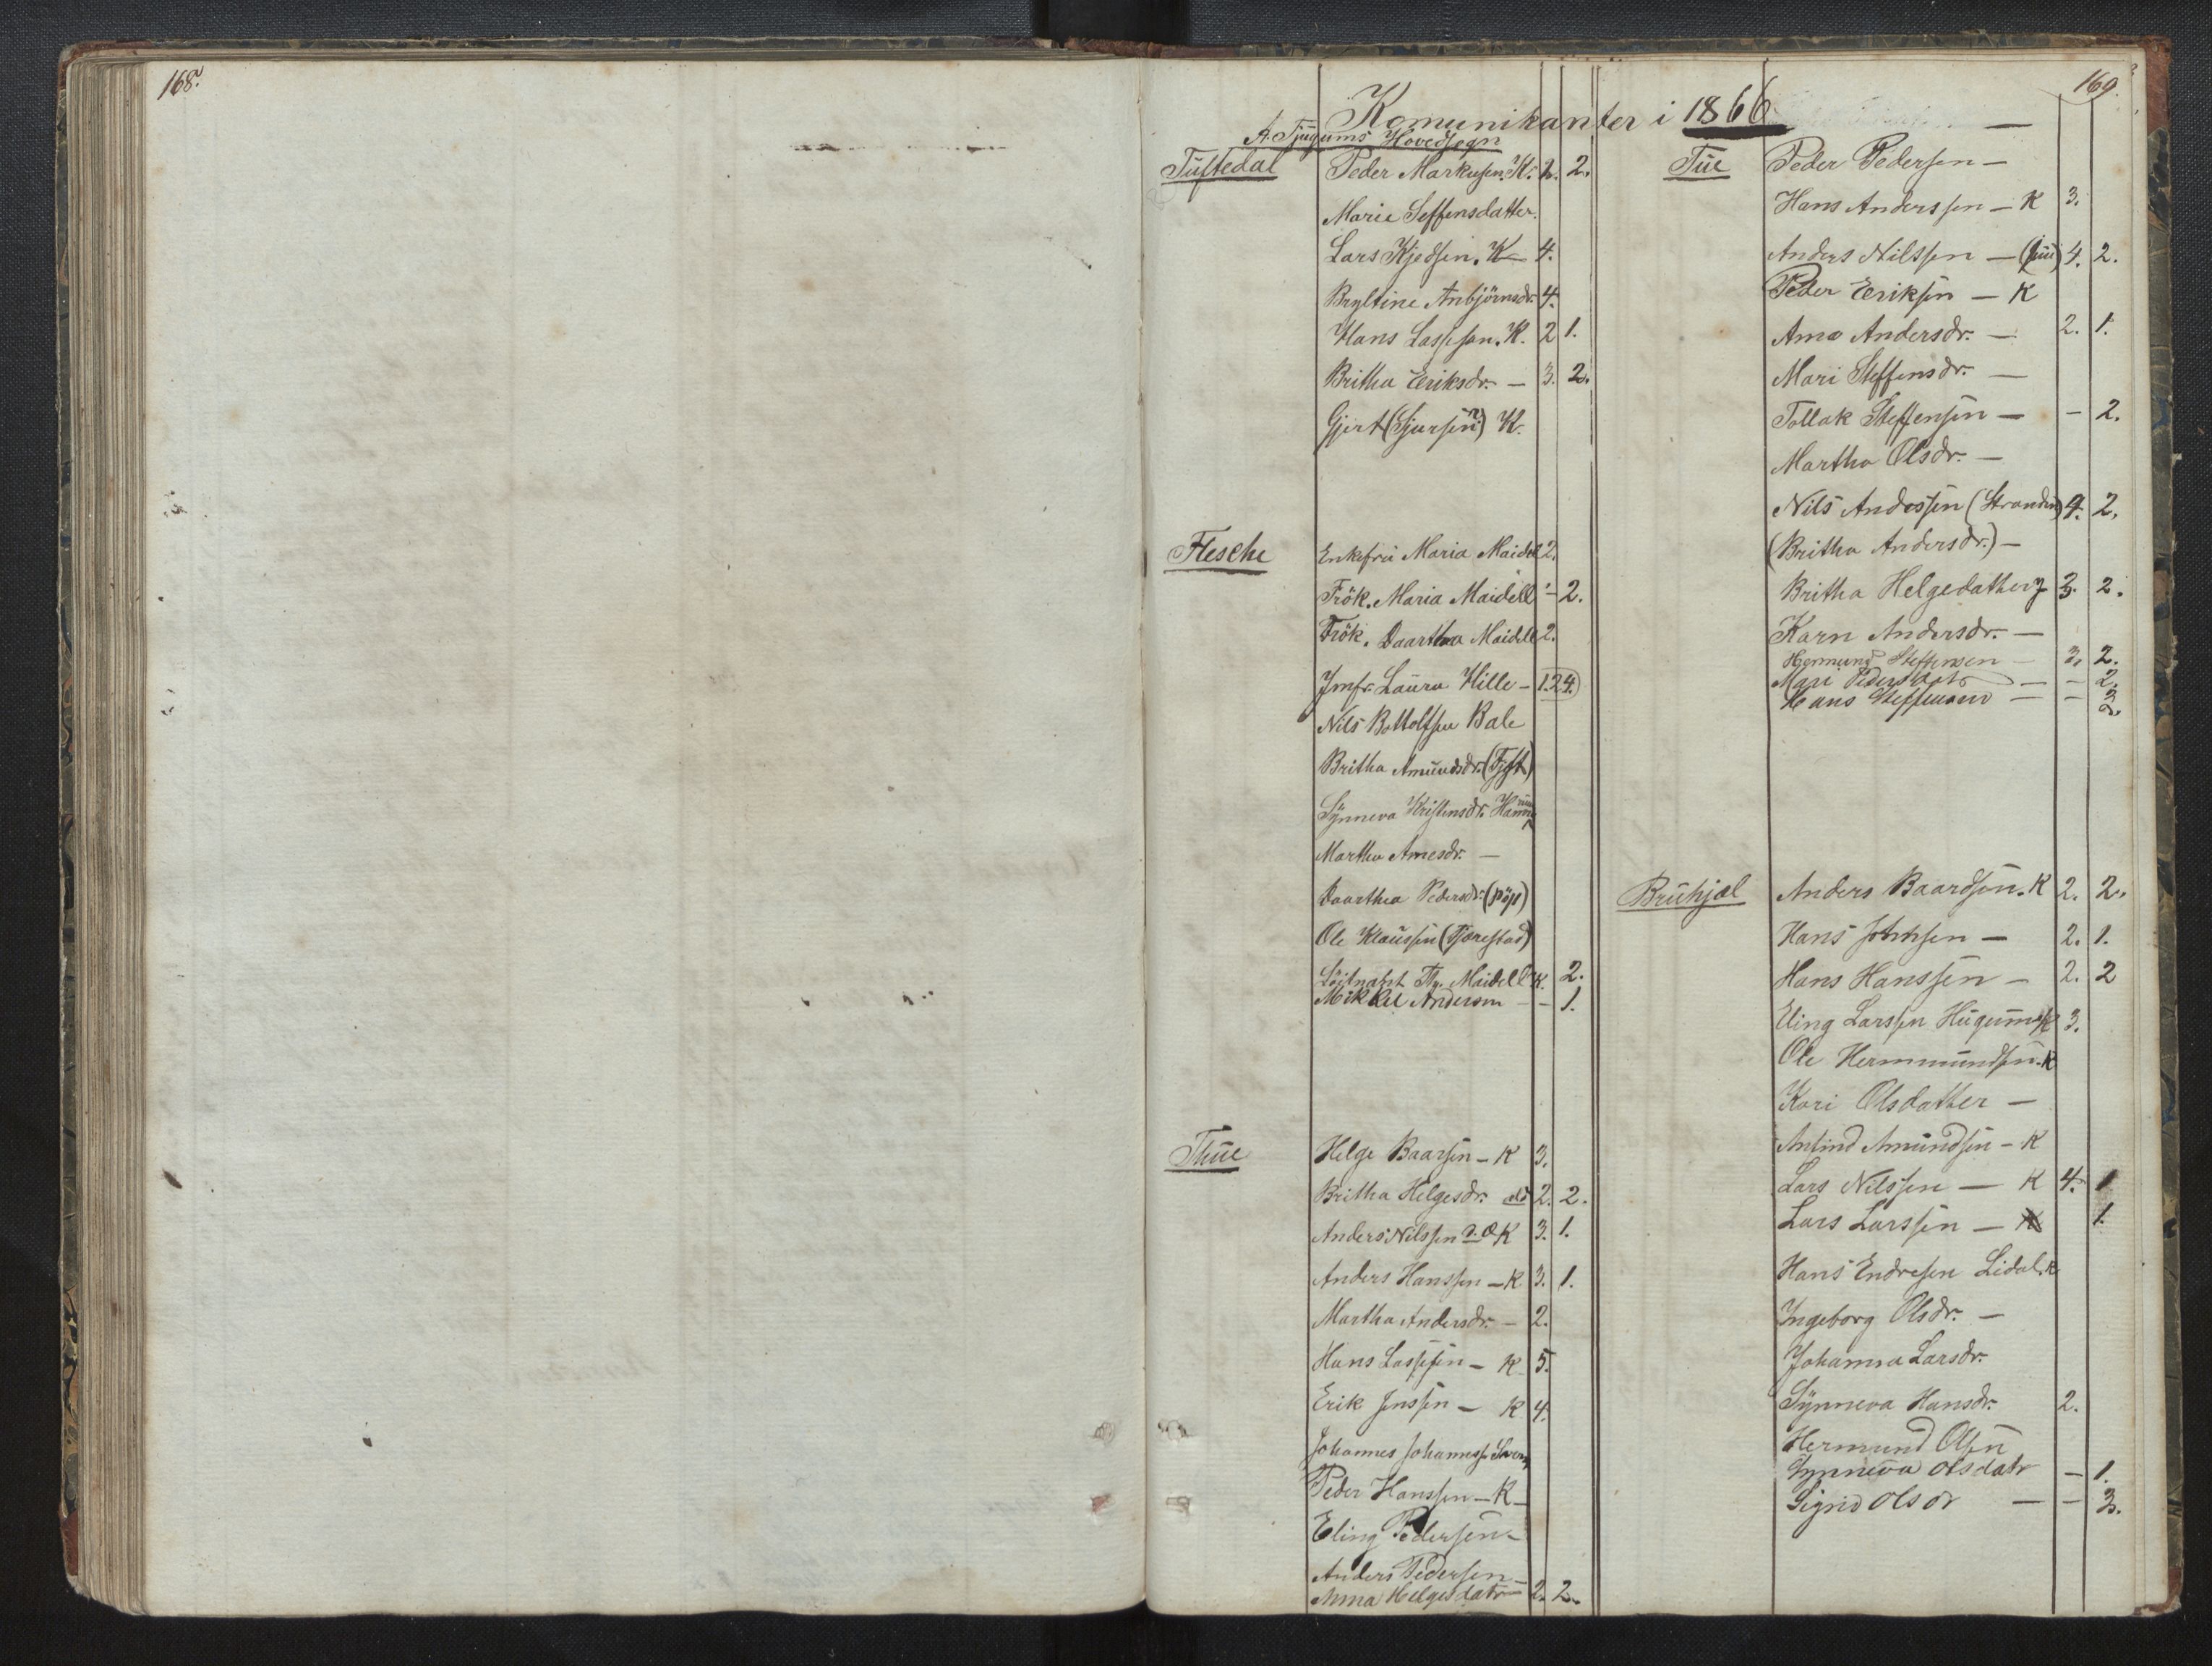 168.
169.
Komunikanter i 1866
A. Tjugums Hovedsogn
Tuftedal Peder Markusen. K. 2. 2.
Marie Seffensdatter.
Lars Kjedsen. K 4.
Bryltine Anbjörnsdr. 4.
Hans Lassesen. K. 2 1.
Britha Eriksdr. — 3. 2.
Gjert (Sjursen) K.
Flesche Enkefru Maria Maidell 2.
Frök. Maria Maidell - 2.
Frök. Daarthea Maidell 2.
Jmfr. Laura Hille - 1.24.
Nils Bottolfsen Bale
Britha Amundsdr.
Synneva Kristensdr.
Martha Arnesdr. —
Daarthea Pedersdr.
Ole Klaussen (Tjærestad)
Maidell K. 2.
Mikkel Andersen - - 1.
Thue Helge Baarsen - K 3.
Britha Helgesdr. 2. 2.
Anders Nilssen K 3. 1.
Anders Hanssen - K 3. 1.
Martha Andersdr. - 2.
Hans Lassesen - K 5.
Erik Jenssen - K 4.
Johannes
Peder Hanssen - K -
Eling Pedersen -
Anders Pedersen -
Anna Helgesdatr 2. 2.
Tue Peder Pedersen —
Hans Anderssen — K 3.
Anders Nilssen — 4. 2.
Peder Eriksen — K
Anna Andersdr. — 2. 1.
Mari Steffensdr. —
Tollak Steffensen — - 2.
Martha Olsdr. —
Nils Anderssen (Stranden) 4. 2.
(Britha Andersdr.) —
Britha Helgedatter 3. 2.
Karn Andersdr. —
Hermund Steffensen — 3. 2.
Mari Pedersdatr — - 2.
Hans Steffensen — - 2.
Bruhjæl Anders Baardsen. K 2. 2.
Hans Johnsen — 2. 1.
Hans Hanssen — 2. 2
Eling Larssen Hugum K 3.
Ole Hermmundsen. K
Kari Olsdatter —
Anfind Amundsen - K
Lars Nilssen — K 4. 1
Lars Larssen — K 1.
Hans Endresen Lidal. K
Ingeborg Olsdr. —
Johanna Larsdr.
Synneva Hansdr. 2.
Hermund Olsen
Synneva Olsdatr - 1.
Sigrid Olsdr — - 3.